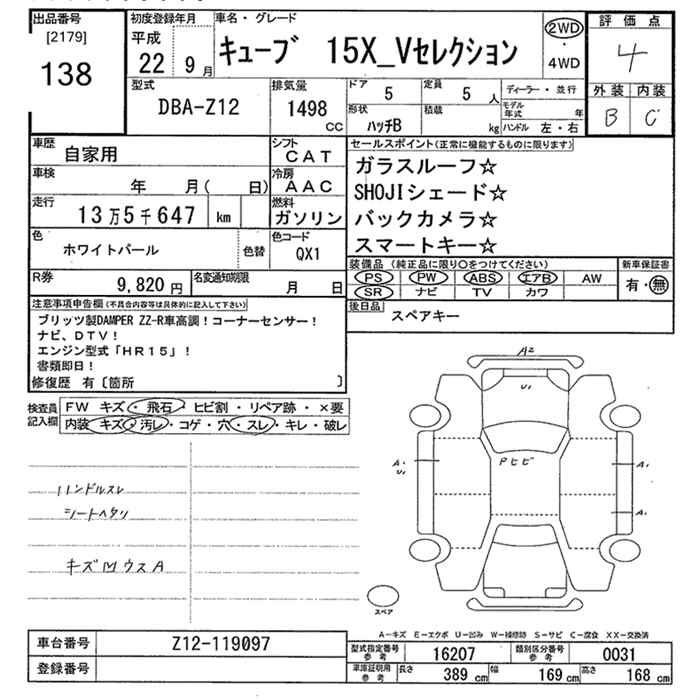 出品番号 初度登録年月 車名・グレード 評価点
[2179] 138
平成 22 9月
キューブ 15X_Vセレクション
2WD・4WD
4
型式 DBA-Z12
排気量 1498 CC
ドア 5
定員 5 人
ディーラー・並行
外装 内装
B C
形状 ハッチB
積載 kg
モデル年式 年
ハンドル 左・右
車歴 自家用
シフト CAT
セールスポイント(正常に機能するものに限ります)
ガラスルーフ☆
SHOJIシェード☆
バックカメラ☆
スマートキー☆
車検 年 月( 日)
冷房 AAC
走行 13万5千647 km
燃料 ガソリン
色 ホワイトパール
色替
色コード QX1
装備品(純正品に限り〇をつけてください) 新車保証書
PS PW ABS エアB AW
SR ナビ TV カワ
有・無
R券 9,820円
名変通知期限 月 日
後日品 スペアキー
注意事項申告欄(不具合内容等は具体的に記入して下さい)
ブリッツ製DAMPER ZZ-R車高調!コーナーセンサー!
ナビ、DTV!
エンジン型式「HR15」!
書類即日!
修復歴 有〔箇所 〕
検査員記入欄
FW キズ・飛石・ヒビ割・リペア跡・×要
内装 キズ・汚レ・コゲ・穴・スレ・キレ・破レ
ハンドルスレ
シートヘタリ
キズ M ウス A
A2
U1
Pヒビ
A1
U1
A1
A1
スペア
A-キズ E-エクボ U-凹み W-補修跡 S-サビ C-腐食 XX-交換済
車台番号 Z12-119097
登録番号
型式指定番号 参考 16207
類別区分番号 参考 0031
車庫証明用 参考 長さ 389 cm 幅 169 cm 高さ 168 cm